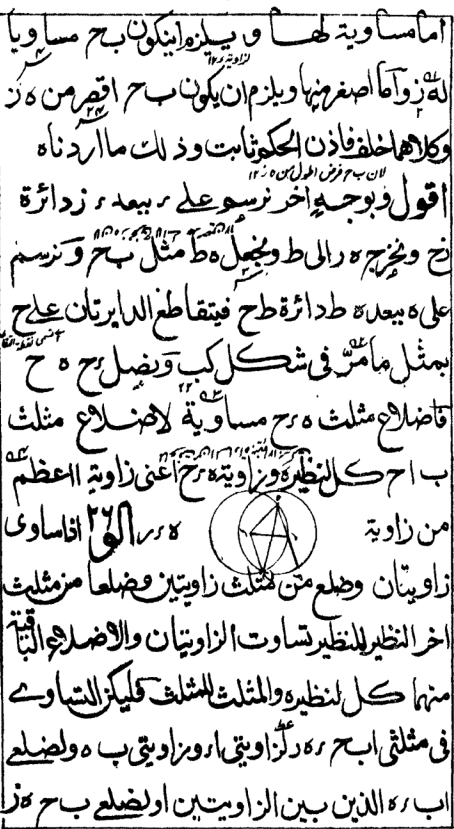 اما مساوية لها و يلزم ان يكون ب ح مساويا
له ز و اما اصغر منها ويلزم ان يكون ب ح اقصر من ه ز
وكلاهما خلف فاذن الحكم ثابت وذلك ما اردناه
لان ب ح فرض اطول من ه ز ١٢
اقول وبوجه اخر نرسم على ء ببعد ء ز دائرة
زح ونخرج ه ء الى ط ونجعل ه ط مثل ب ح ونرسم
على ه ببعد ه ط دائرة ط ح فيتقاطع الدايرتان على ح
بمثل ما مر فى شكل كب ونصل ء ح ه ح
فاضلاع مثلث ه ء ح مساوية لاضلاع مثلث
ب ا ح كل لنظيره وزاوية ه ء ح اعنى زاوية ا اعظم
من زاوية ه ء ز الو ٢٦ اذا ساوى
زاويتان وضلع من مثلث زاويتين وضلعا من مثلث
اخر النظير للنظير تساوت الزاويتان والاضلاع الباقية
منهما كل لنظيره والمثلث للمثلث فليكن التساوى
فى مثلثى ا ب ح ء ه ر لزاويتى ا ء وزاويتى ب ه ولضلعى
ا ب ء ه الذين بين الزاويتين او لضلعى ب ح ه ز